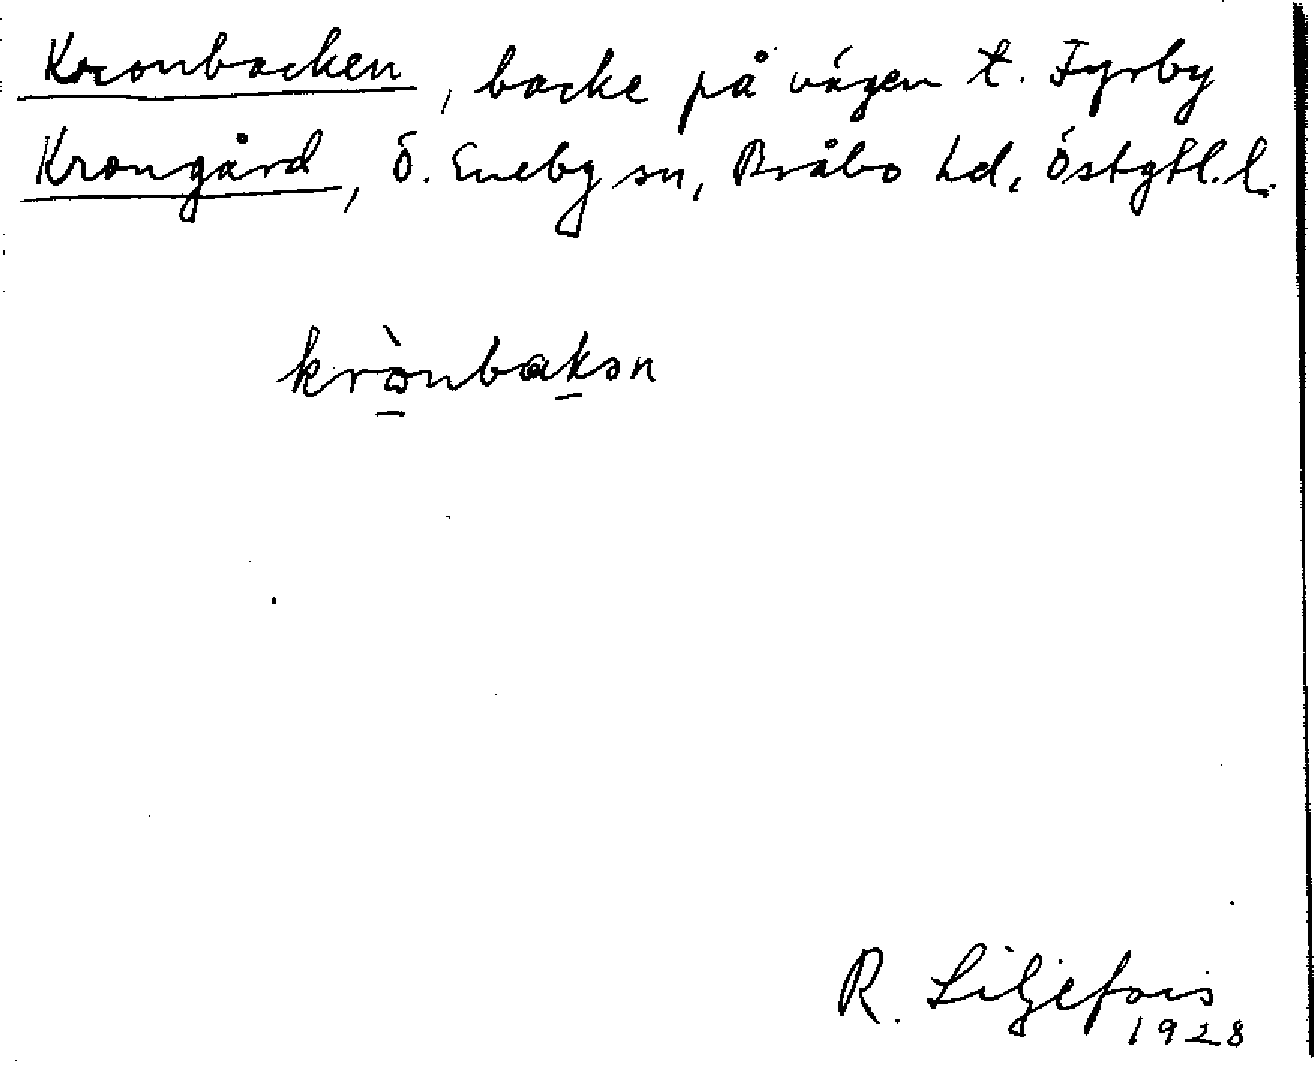 Kronbacken, backe på vägen t. Fyrby
Krongård, Ö. Eneby sn, Bråbo hd, Östgtl. l.
krònbakən
R. Liljefors
1928